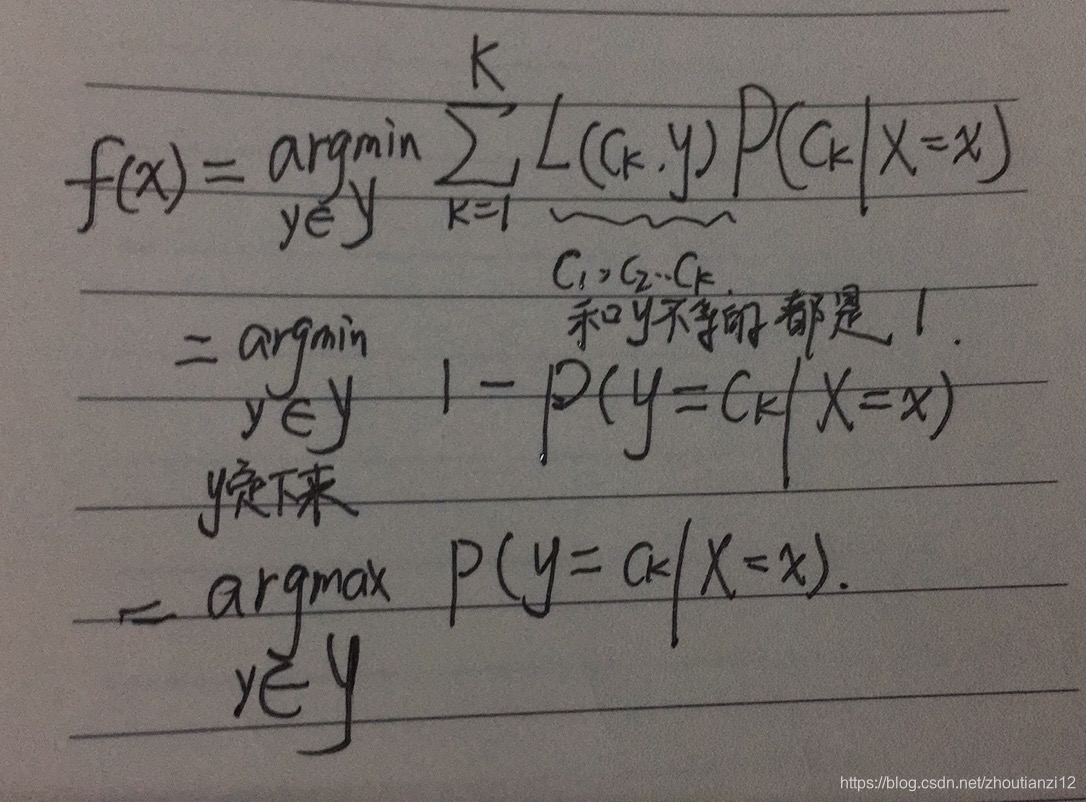 K
f(x) = argmin Σ L(Ck,y) P(Ck|X=x)
y∈y K=1
C1,C2..Ck.
和y不等的都是1.
= argmin 1-P(y=Ck|X=x)
y∈y
y定下来
= argmax P(y=Ck|X=x).
y∈y
https://blog.csdn.net/zhoutianzi12